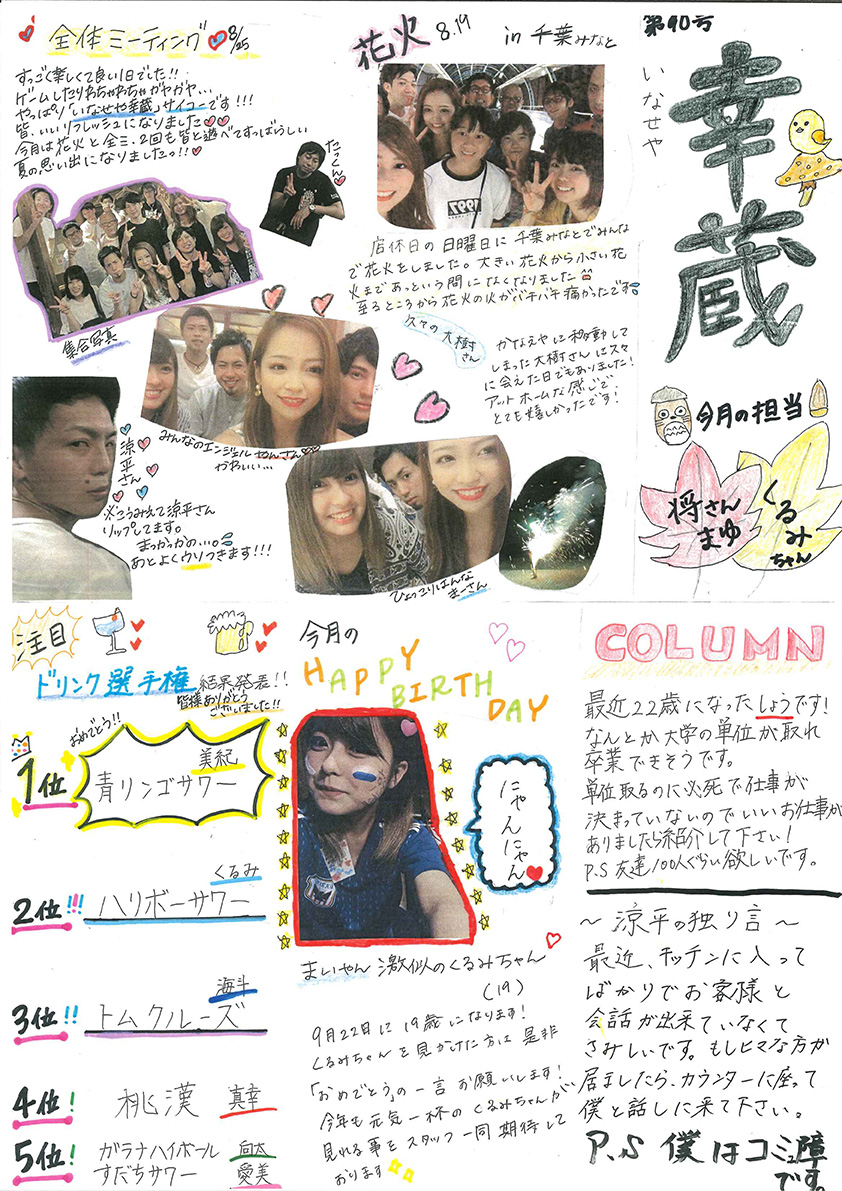 第90号
いなせや
幸蔵
今月の担当
将さん
まゆ
くるみ
ちゃん
花火 8.19 in 千葉みなと
店休日の日曜日に千葉みなとでみんな
で花火をしました。大きい花火から小さい花
火まであっという間になくなりました
至るところから花火の火がバチバチ痛かったです
久々の大樹
さん
かなえやに移動して
しまった大樹さんに久々
に会えた日でもありました!
アットホームな感じで、
とても嬉しかったです!
ひょっこりはんな
まーさん
全体ミーティング 8/25
すっごく楽しくて良い1日でした!!
ゲームしたりわちゃわちゃがやがや...
やっぱり「いなせや幸蔵」サイコーです!!!
皆、いいリフレッシュになりました
今月は花火と全ミ、2回も皆と遊べてすばらしい
夏の思い出になりましたっ!!
たっくん
集合写真
みんなのエンジェル
かわいい...
涼平さん
※こうみえて涼平さん
リップしてます。
まっかっかの...。
あとよくウリつきます!!!
注目
ドリンク選手権 結果発表!!
皆様ありがとう
ございました!!
おめでとう!!
1位 青リンゴサワー 美紀
2位!!! ハリボーサワー くるみ
3位!! トムクルーズ 海斗
4位! 桃漢 真幸
5位! ガラナハイボール 向太
すだちサワー 愛美
今月の
HAPPY
BIRTH
DAY
にゃんにゃん
まいやん激似のくるみちゃん
(19)
9月22日に19歳になります!
くるみちゃんを見かけた方は是非
「おめでとう」の一言お願いします!
今年も元気一杯のくるみちゃんが
見れる事をスタッフ一同期待して
おります
COLUMN
最近22歳になったしょうです!
なんとか大学の単位が取れ
卒業できそうです。
単位取るのに必死で仕事が
決まっていないのでいいお仕事が
ありましたら紹介して下さい!
P.S 友達100人ぐらい欲しいです。
~涼平の独り言~
最近、キッチンに入って
ばかりでお客様と
会話が出来ていなくて
さみしいです。もしヒマな方が
居ましたら、カウンターに座って
僕と話しに来て下さい。
P.S 僕はコミュ障
です。